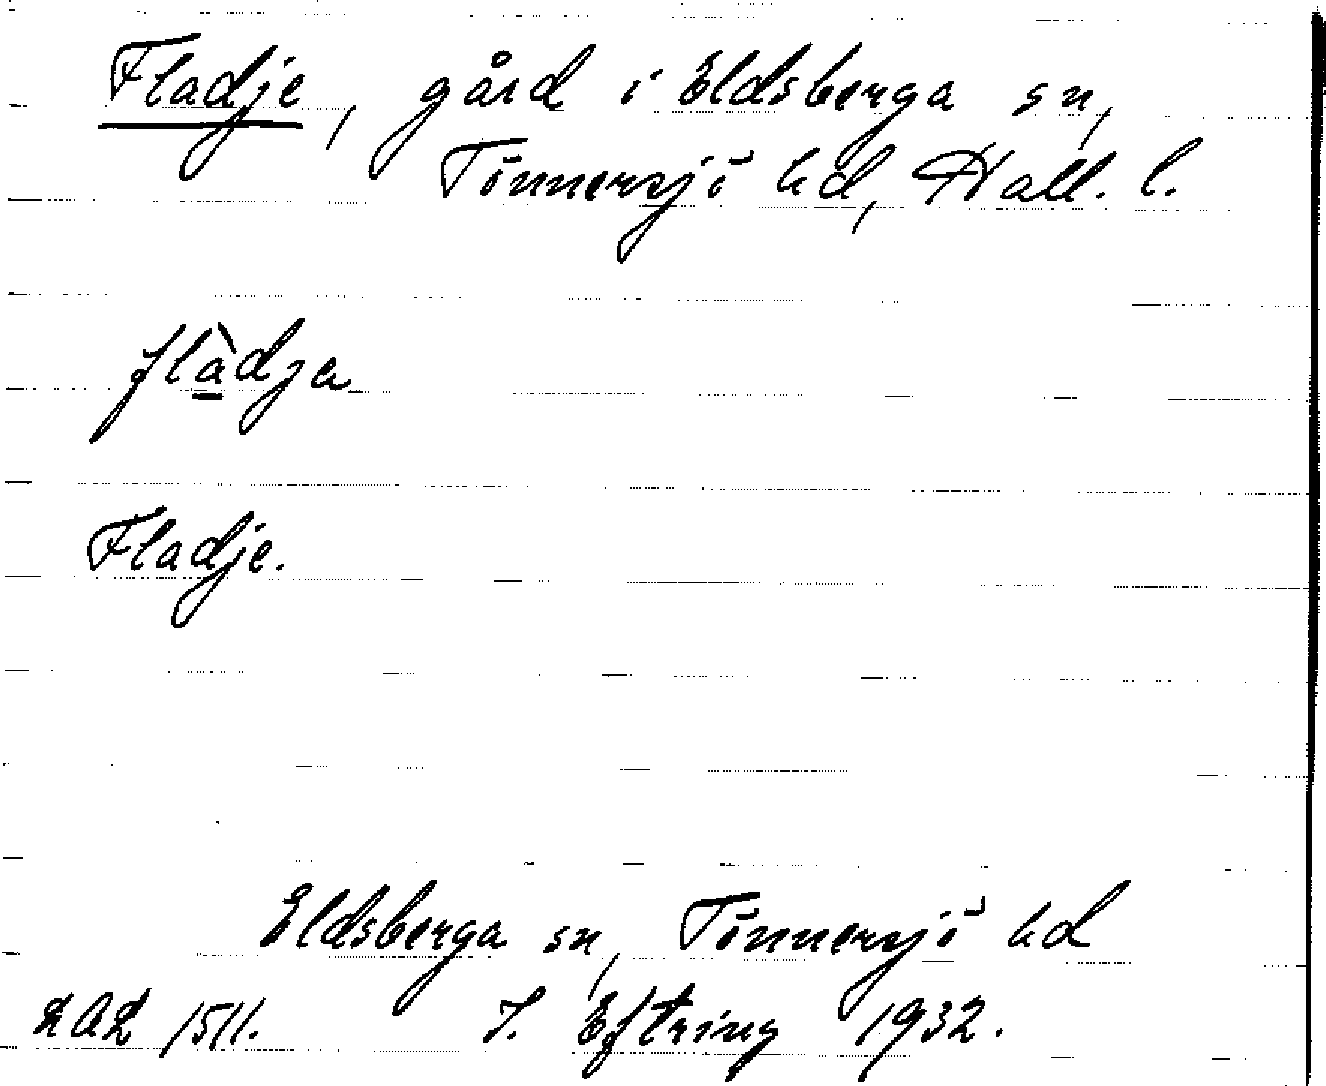 Fladje, gård i Eldsberga sn,
Tönnersjö hd, Hall. l.
flàdja
Fladje.
Eldsberga sn, Tönnersjö hd
LAL 1511. J. Eftring 1932.